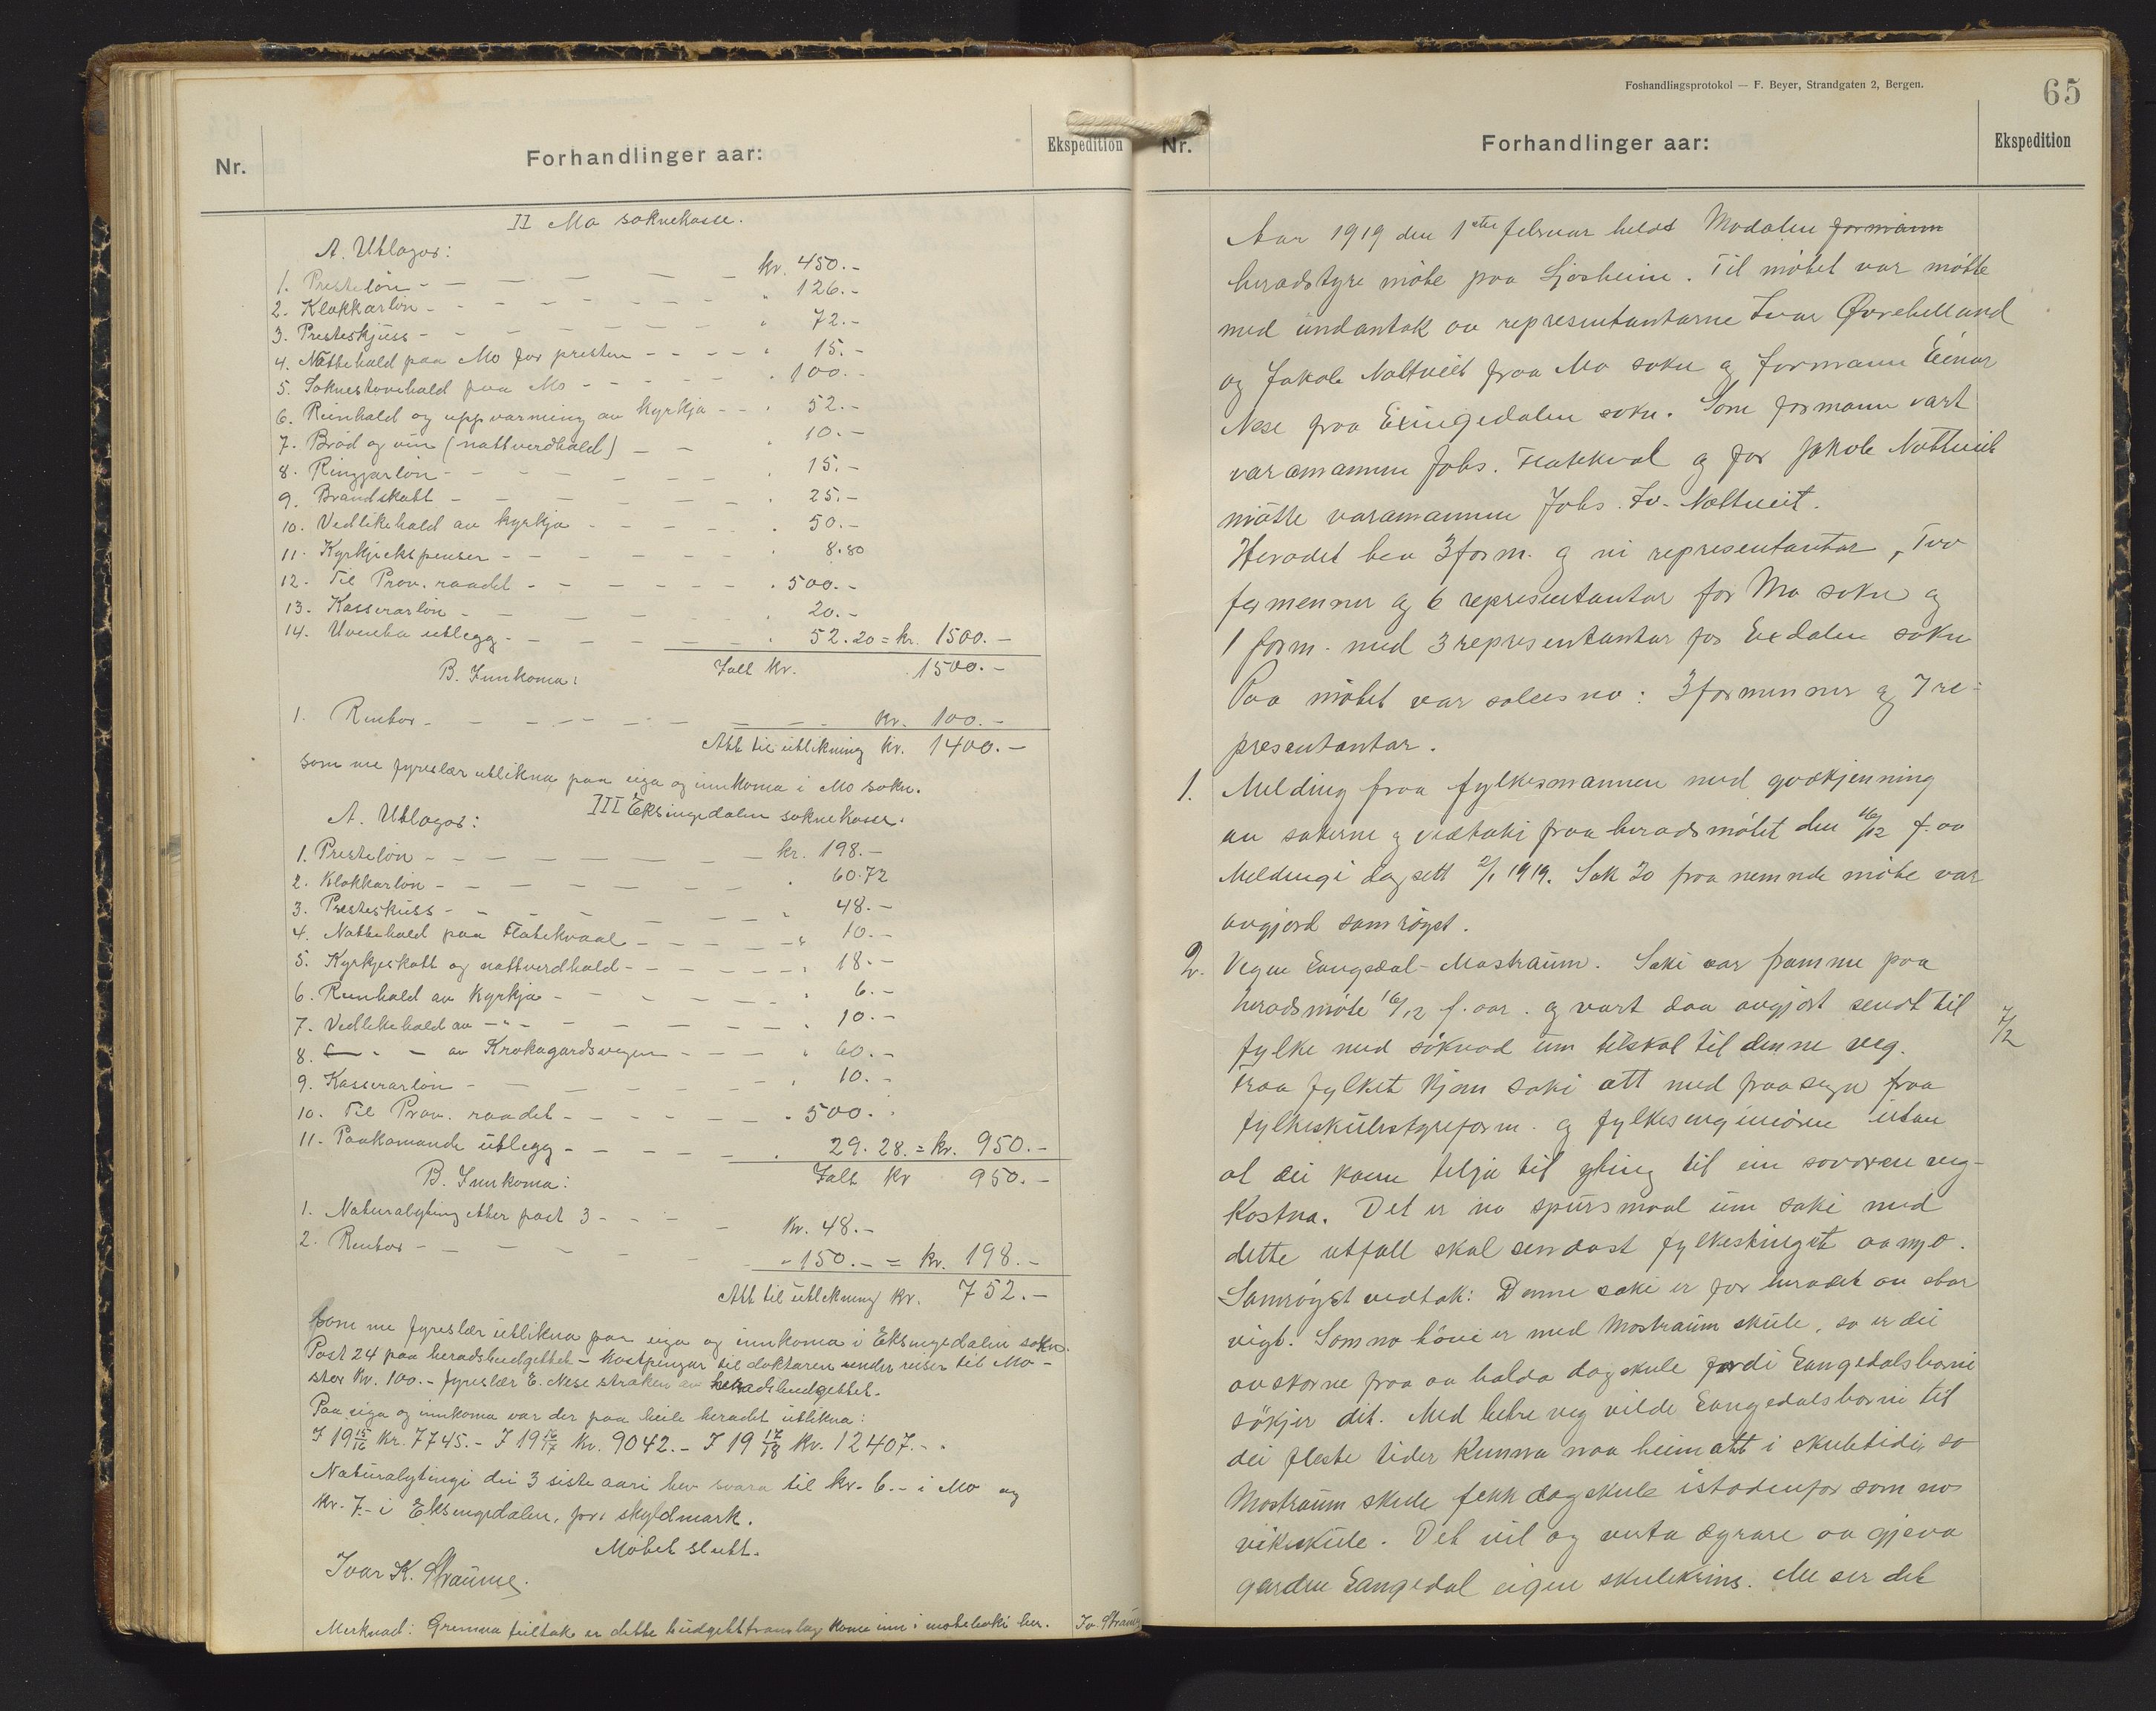 Nr.
Forhandlinger aar:
Ekspedition
II Mo soknekasse.
A. Utlagor:
1. Presteløn - - - - - - kr. 450.-
2. Klokkarløn - - - - - - " 126.-
3. Presteskjuss - - - - - - " 72.-
4. Nattehald paa Mo for presten - - - - " 15.-
5. Soknestovehald paa Mo - - - - - " 100.-
6. Reinhald og uppvarming av kyrkja - - " 52.-
7. Brød og vin (nattverdhald) - - " 10.-
8. Ringjarløn - - - - - - " 15.-
9. Brandskatt - - - - - - " 25.-
10. Vedlikehald av kyrkja - - - - " 50.-
11. Kyrkjeekspenser - - - - - - " 8.80
12. Til Prov. raadet - - - - - - " 500.-
13. Kasserarløn - - - - - - " 20.-
14. Uventa utlegg - - - - - - " 52.20 = kr. 1500.-
Ialt kr. 1500.-
B. Innkoma:
1. Rentor - - - - - - - kr. 100.-
Att til utlikning kr. 1400.-
som me fyreslær utlikna paa eiga og innkoma i Mo sokn.
III Eksingedalen soknekasse.
A. Utlagor:
1. Presteløn - - - - - - - kr. 198.-
2. Klokkarløn - - - - - - " 60.72
3. Presteskuss - - - - - - " 48.-
4. Nattehald paa Flatekvaal - - - - - " 10.-
5. Kyrkjeskatt og nattverdhald - - - - - " 18.-
6. Reinhald av kyrkja - - - - - - " 6.-
7. Vedlikehald av - " - - - - - - " 10.-
8. - " - av Krokagardsvegen - - - - " 60.-
9. Kasserarløn - - - - - - " 10.-
10. Til Prov. raadet - - - - - " 500.-
11. Paakomande utlegg - - - - - " 29.28. = kr. 950.-
Ialt kr 950.-
B. Innkoma:
1. Naturalyting etter post 3 - - - - kr. 48.-
2. Rentor - - - - - - - 150.- = kr. 198.-
Att til utlikning kr. 752.-
som me fyreslær utlikna paa eiga og innkoma i Eksingedalen sokn.
Post 24 paa heradsbudgettet - kostpengar til doktaren under reiser til Mo-
ster kr. 100.- fyreslær E. Nese stroken av heradsbudgettet.
Paa eiga og innkoma var der paa heile heradet utlikna:
I 19 15/16 kr. 7745.- I 19 16/17 kr. 9042.- I 19 17/18 kr. 12407.-
Naturalytingi dei 3 siste aari hev svara til kr. 6.- i Mo og
kr. 7.- i Eksingedalen, for skyldmark.
Møtet slutt.
Ivar K. Straume.
Merknad: Gremna tiltak er dette budgettframlag kome inn i møteboki her. Iv. Straume
Foshandlingsprotokol — F. Beyer, Strandgaten 2, Bergen.
65
Nr.
Forhandlinger aar:
Ekspedition
Aar 1919 den 1ste februar heldt Modalen formann
heradstyre møte paa Ljosheim. Til møtet var møtte
med undantak av representantarne Ivar Øvrehelland
og Jakob Nottveit fraa Mo sokn og formann Einar
Nese fraa Exingedalen sokn. Som formann vart
varamannen Johs. Flatekval og for Jakob Nottveit
møtte varamannen Johs. Iv. Nottveit.
Heradet hev 3 form. og ni representantar, Tvo
formenner og 6 representantar for Mo sokn og
1 form. med 3 representantar for Exdalen sokn
Paa møtet var soleis no: 3 formenner og 7 re-
presentantar.
1. Melding fraa fylkesmannen med godkjenning
av sakerne og vedtaki fraa heradsmøtet den 16/12 f. aa
Meldingi dagsett 2/1 1919. Sak 20 fraa nemnde møte var
avgjord samrøyst.
2. Vegen Eangedal-Mostraum. Saki var framme paa
heradsmøte 16/12 f. aar. og vart daa avgjort sendt til
fylke med søknad um tilskot til denne veg. 7/2
Fraa fylket kjem saki att med fraasegn fraa
fylkesskulestyreform. og fylkesingeniøren utan
at dei kann tilja til yting til ein sovoren veg-
kostna. Det er no spursmaal um saki med
dette utfall skal sendast fylkestinget aa nyo.
Samrøyst vedtak: Denne saki er for heradet av stor
vigt. Som no høvi er med Mostraum skule, so er dei
avskorne fraa aa halda dagskule fordi Eangedalsborni
søkjer dit. Med betre veg vilde Eangedalsborni til
dei fleste tider kunna naa heim att i skuletidi so
Mostraum skule fekk dagskule istadenfor som no
vikuskule. Det vil og verta dyrare aa gjeva
garden Eangedal eigen skulekrins. Me ser det